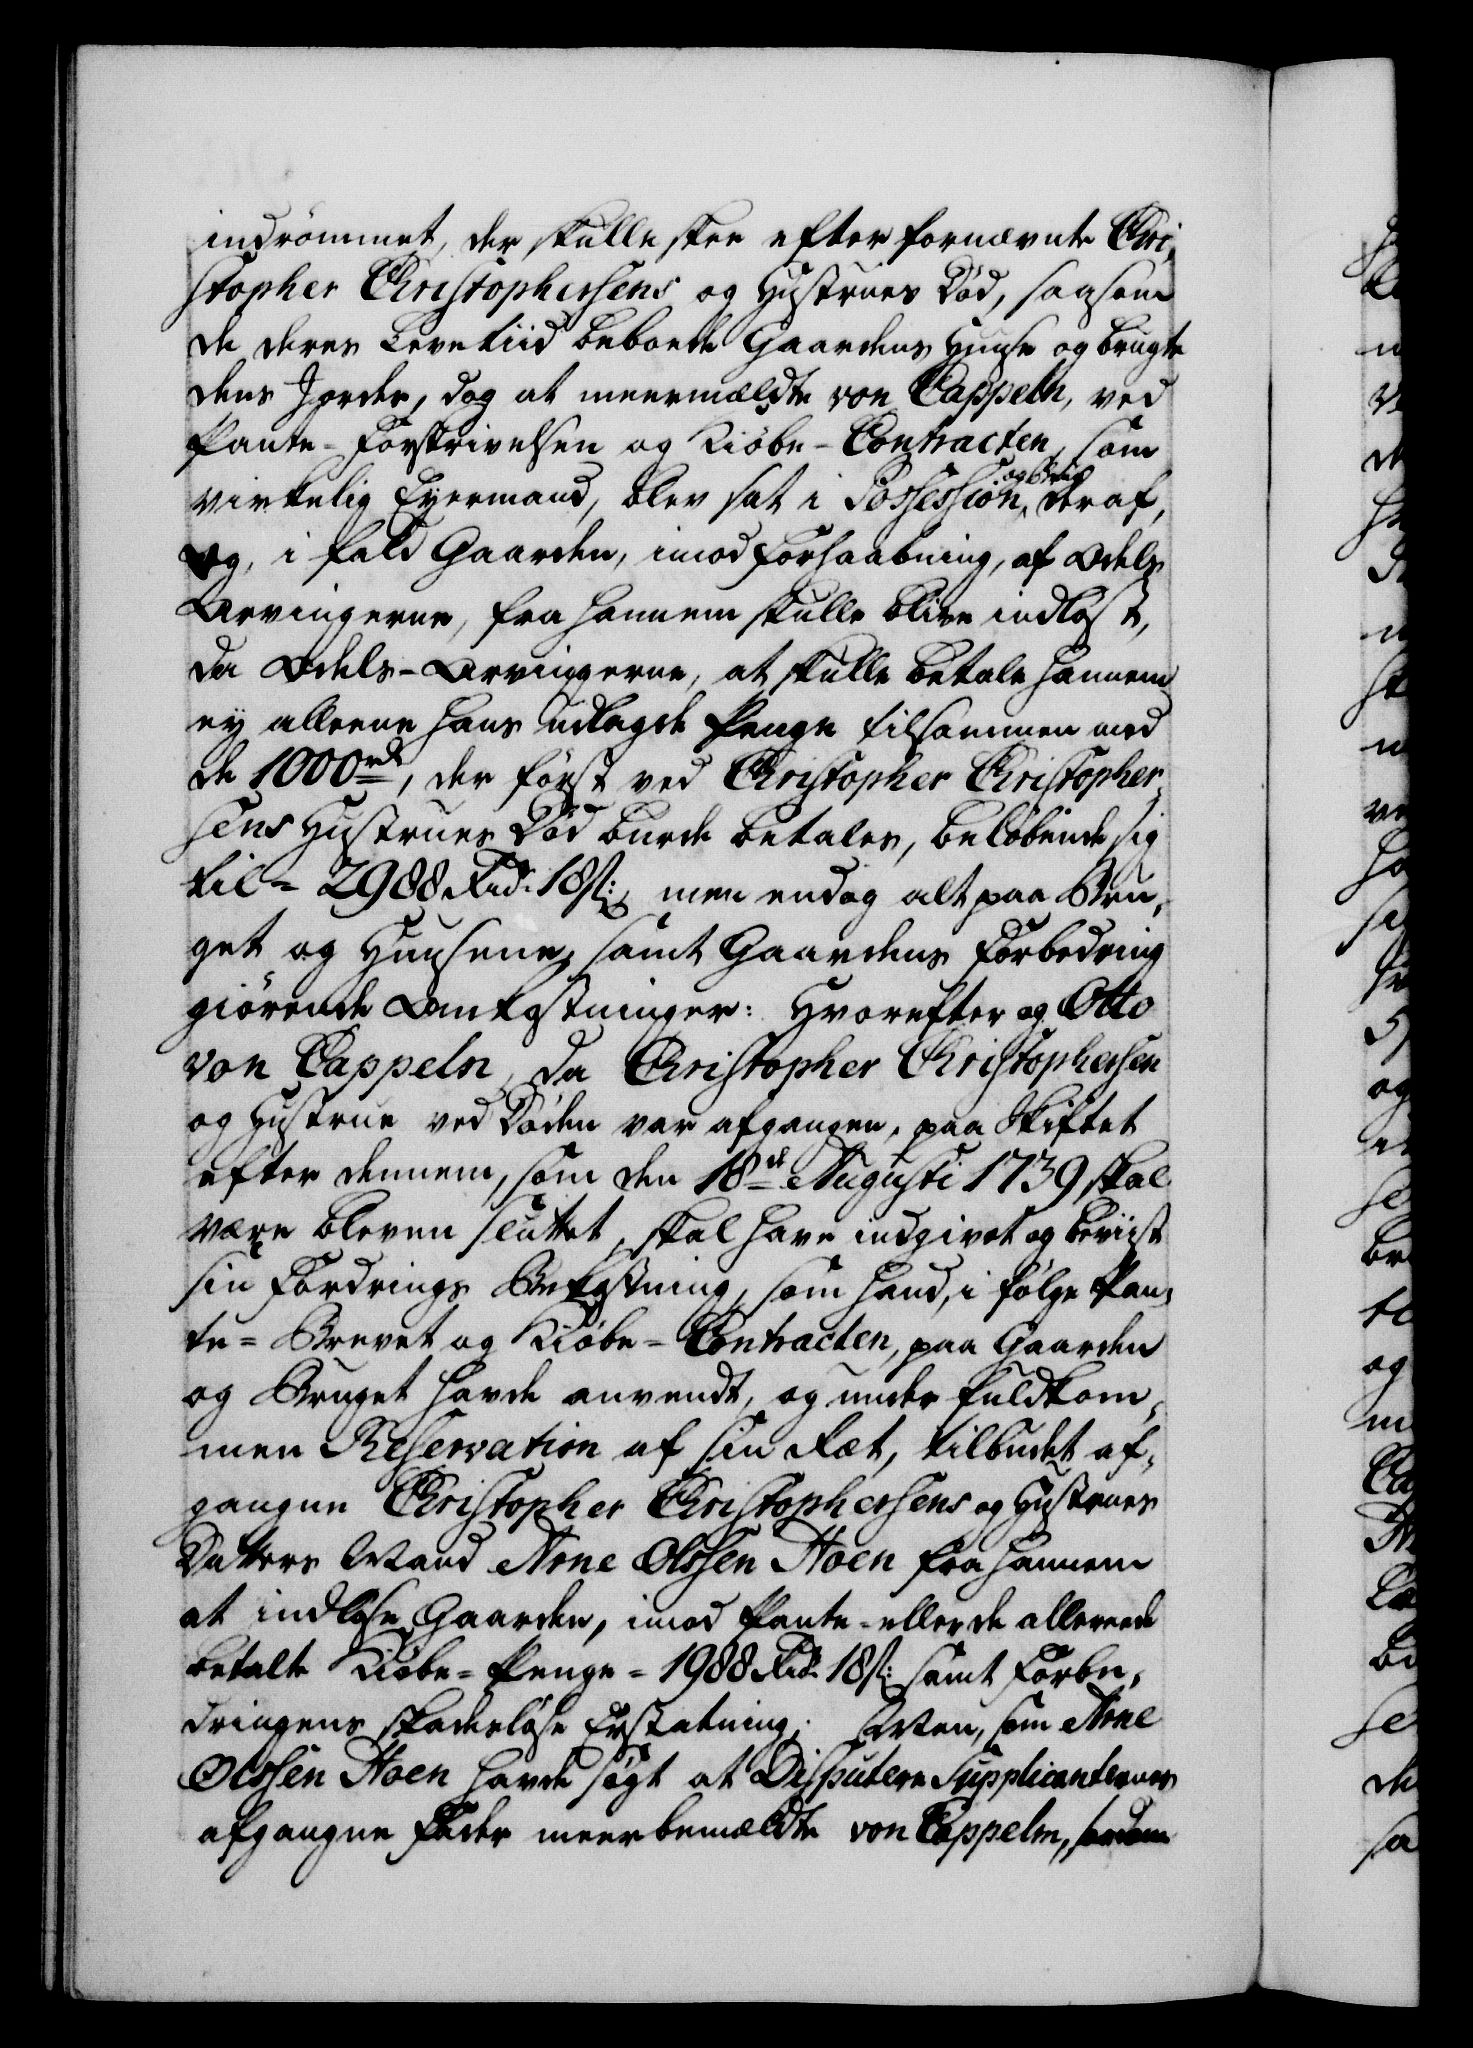 indrömmet, der skulle skee efter fornævnte Chri,
stopher Christophersens og Hustrues Död, saasom
de deres Levetiid beboede Gaardens Huuse og brugte
dens Jorder, dog at meermældte von Cappeln, ved
Pante-Forskrivelsen og Kiöbe-Contracten, som
virkelig Eyermand, blev sat i Possession, og Brug deraf,
og, i fald Gaarden, imod Forhaabning, af Odels
Arvingerne, fra hannem skulle blive indlöst,
da Odels-Arvingerne, at skulle betale hannem
ey alleene hans udlagde Penge tilsammen med
de 1000 rd, der först ved Christopher Christopher,
sens Hustrues Död burde betales, belöbende sig
til = 2988 Rdr. 18 s:, men endog alt paa Bru,
get og Huusene, samt Gaardens Forbedring
giörende Omkostninger: Hvorefter og Otto
von Cappeln, da Christopher Christophersen
og Hustrue ved Döden var afgangen, paa Skiftet
efter dennem, som den 18de Augusti 1739 skal
være bleven sluttet, skal have indgivet og beviist
sin Fordrings Bekostning, som hand, i fölge Pan,
te= Brevet og Kiöbe= Contracten, paa Gaarden
og Bruget havde anvendt, og under fuldkom,
men Reservation af sin Ræt, tilbudet af,
gangne Christopher Christophersens og Hustrues
Datters Mand Arne Olssen Hoen fra hannem
at indlöse Gaarden, imod Pante= eller de allereede
betalte Kiöbe= Penge = 1988 Rdr. 18 s: samt Forbe,
dringens skadeslöse Erstatning; Men, som Arne
Olssen Hoen havde sögt at Disputere Supplicanternes
afgangne Fader meerbemældte von Cappeln,